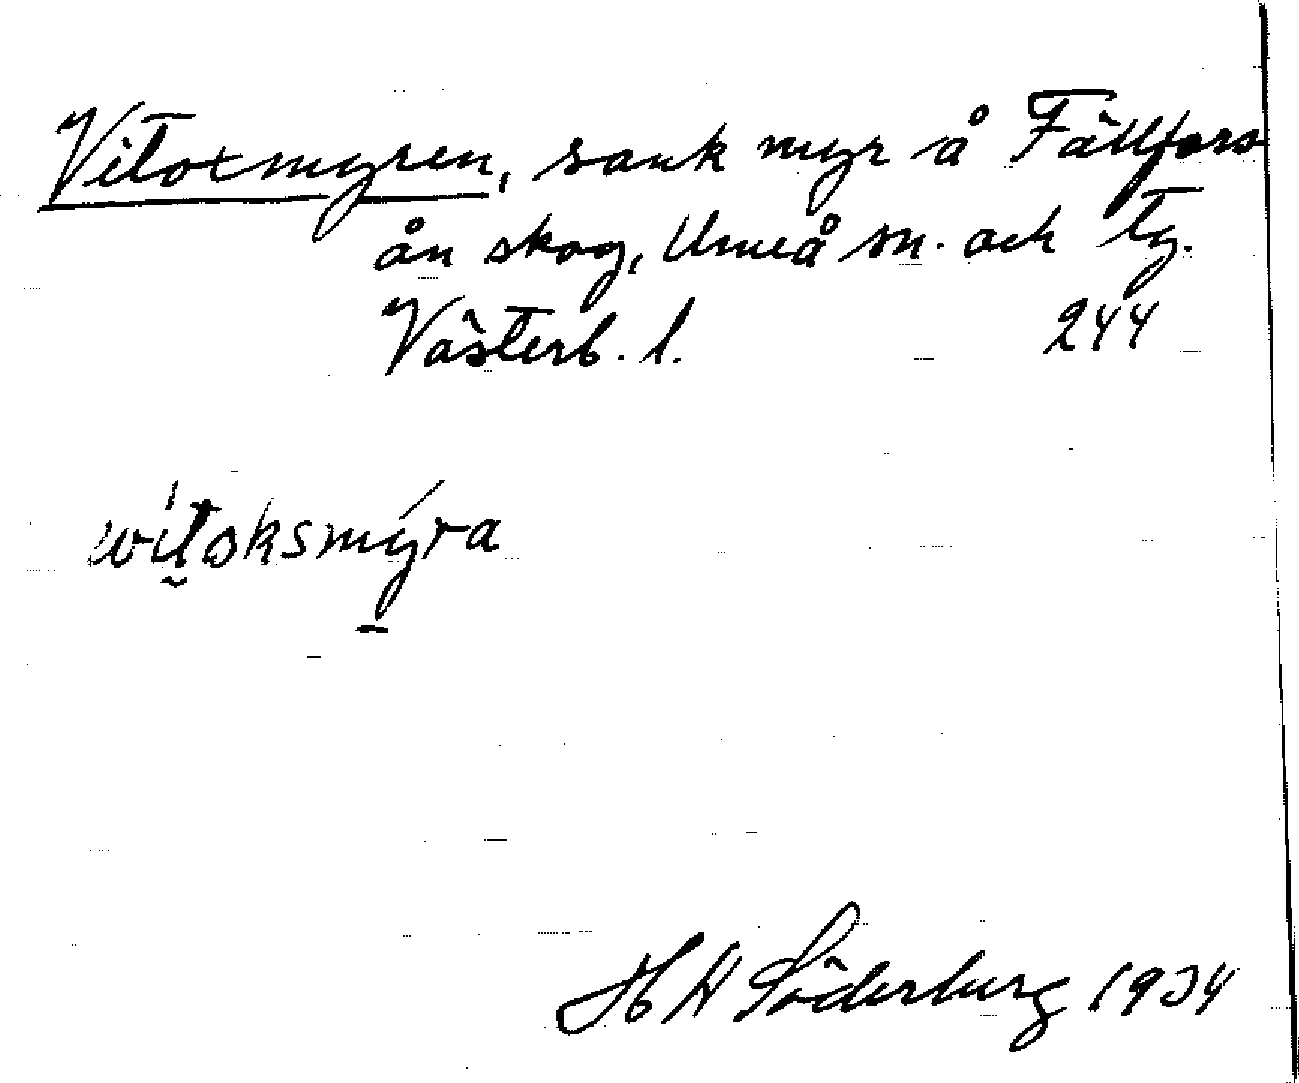 Vitoxmyren, sank myr å Fällfors
ån skog, Umeå sn. och tg.
Västerb. l. 244
wítoksmýra
H W Söderberg 1934